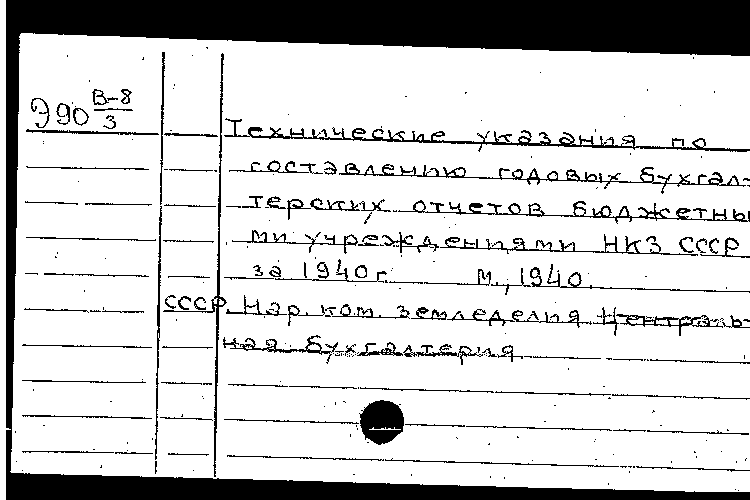 Э90 В-8/3
Технические указания по
составлению годовых бухгал-
терских отчетов бюджетны
ми учреждениями НКЗ СССР
за 1940г. М., 1940.
СССР. Нар. ком. земледелия Централь-
ная бухгалтерия